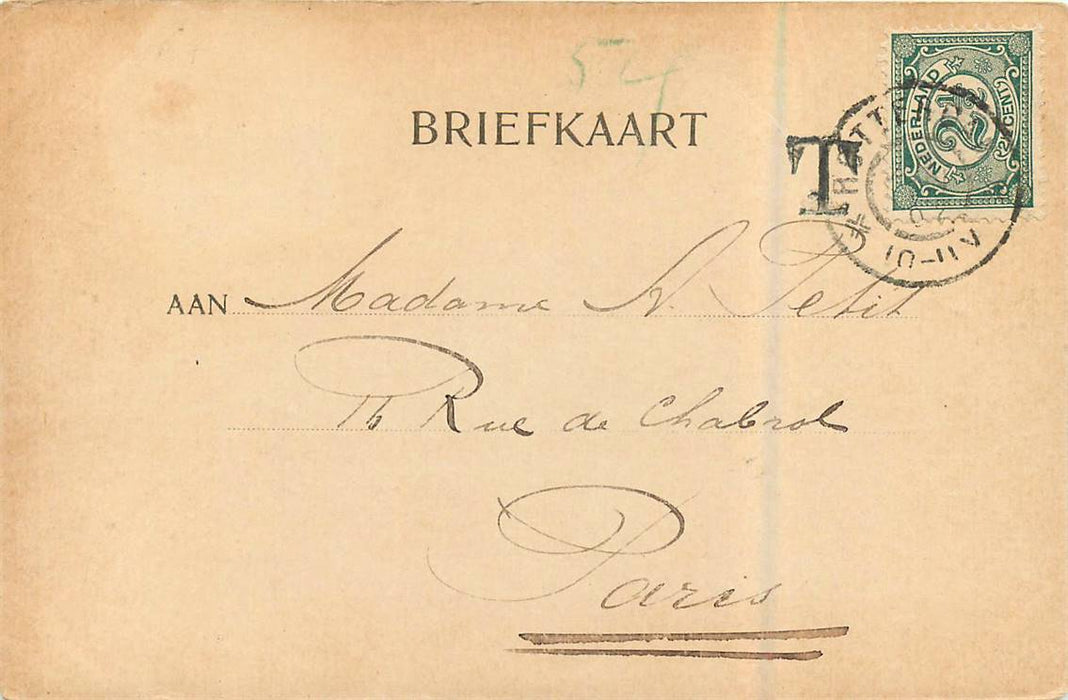 BRIEFKAART
NEDERLAND
2½ CENT
T
10-11V
AAN Madame A. Petit
Rue de Chabrol
Paris